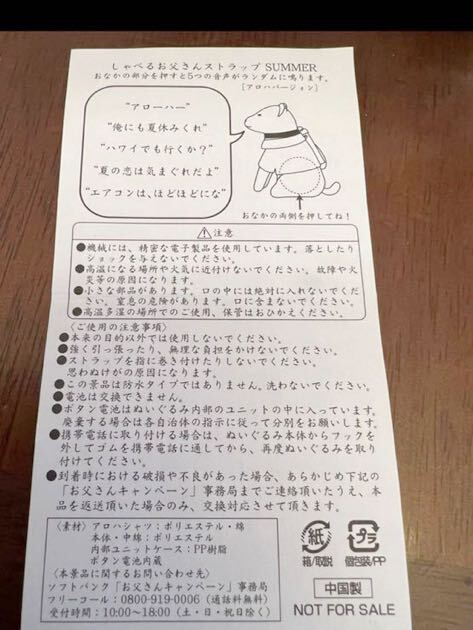 しゃべるお父さんストラップ SUMMER
おなかの部分を押すと5つの音声がランダムに鳴ります。
[アロハバージョン]
"アローハー"
"俺にも夏休みくれ"
"ハワイでも行くか?"
"夏の恋は気まぐれだよ"
"エアコンは、ほどほどにな"
おなかの両側を押してね!
注意
●機械には、精密な電子製品を使用しています。落としたり
ショックを与えないでください。
●高温になる場所や火気に近付けないでください。故障や火
災等の原因になります。
●小さな部品があります。口の中には絶対に入れないでくだ
さい。窒息の危険があります。口に含まないでください。
●高温多湿の場所でのご使用、保管はおひかえください。
〈ご使用の注意事項〉
●本来の目的以外では使用しないでください。
●強く引っ張ったり、無理な負担をかけないでください。
●ストラップを指に巻き付けたりしないでください。
思わぬけがの原因になります。
●この景品は防水タイプではありません。洗わないでください。
●電池は交換できません。
●ボタン電池はぬいぐるみ内部のユニットの中に入っています。
廃棄する場合は各自治体の指示に従って分別をお願いします。
●携帯電話に取り付ける場合は、ぬいぐるみ本体からフックを
外してゴムを携帯電話に通してから、再度ぬいぐるみを取り
付けてください。
●到着時における破損や不良があった場合、あらかじめ下記の
「お父さんキャンペーン」事務局までご連絡頂いたうえ、本
品を返送頂いた場合のみ、交換対応させて頂きます。
〈素材〉アロハシャツ:ポリエステル・綿
本体・中綿:ポリエステル
内部ユニットケース:PP樹脂
ボタン電池内蔵
〈本景品に関するお問い合わせ先〉
ソフトバンク「お父さんキャンペーン」事務局
フリーコール:0800-919-0006(通話料無料)
受付時間:10:00〜18:00(土・日・祝日除く)
紙
箱/取説
プラ
個包装/PP
中国製
NOT FOR SALE